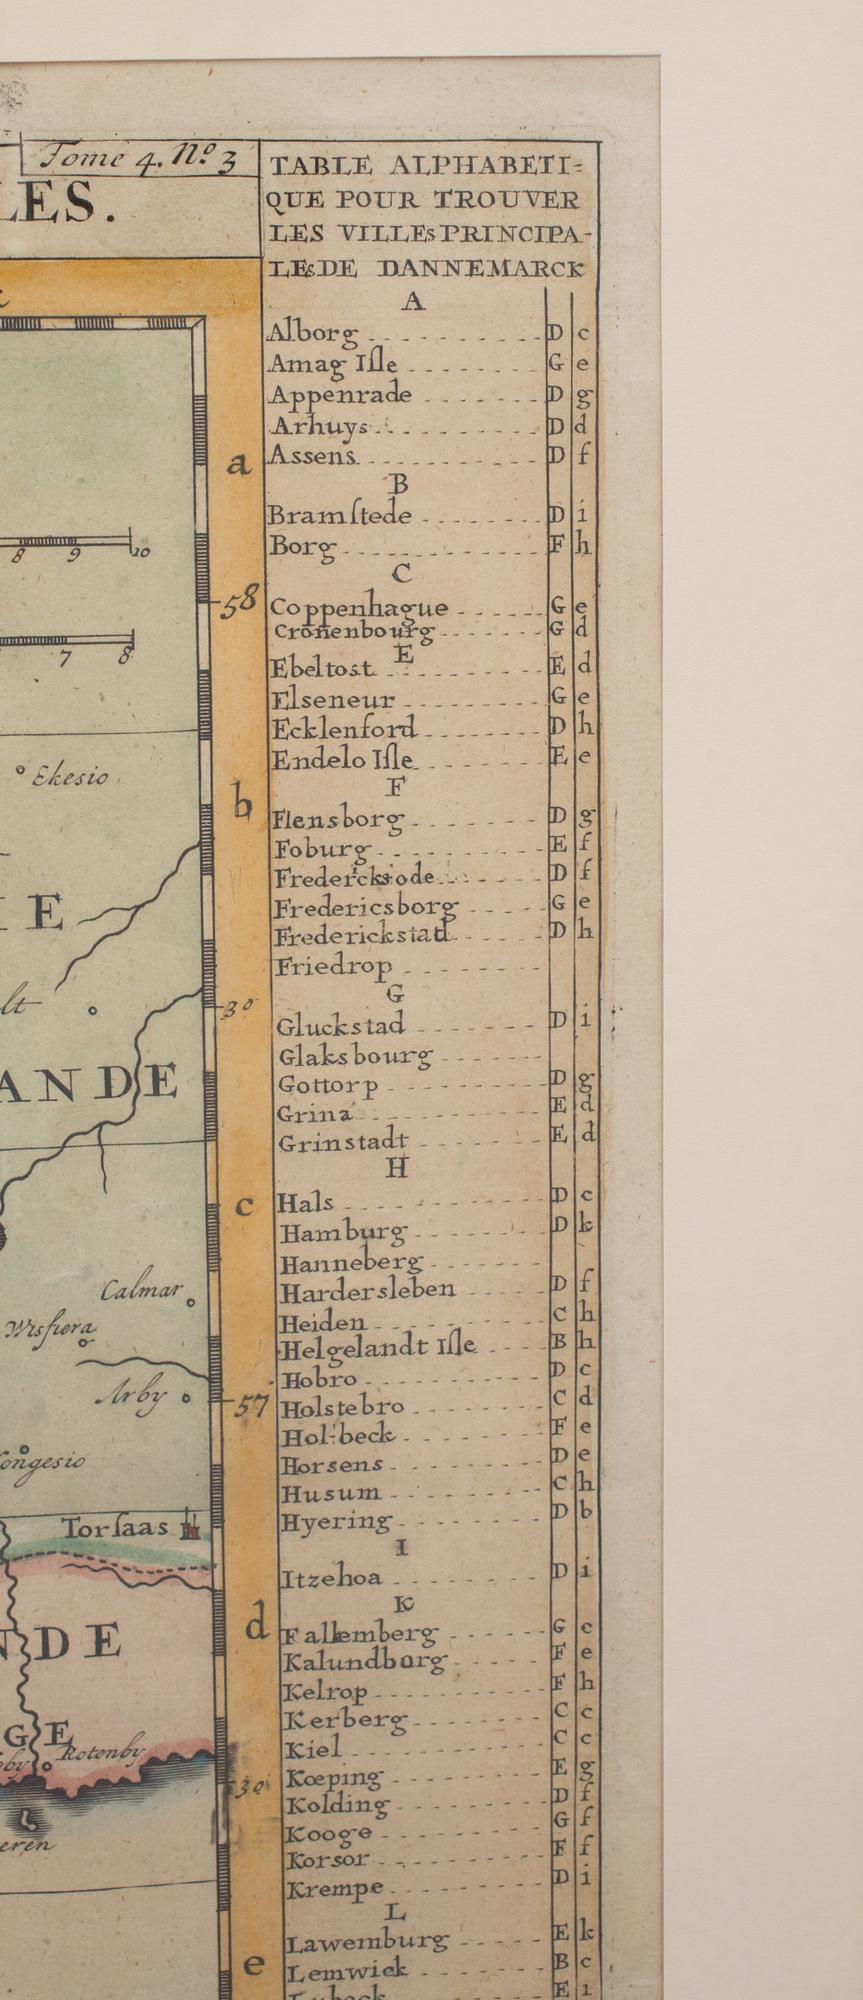 Tome 4. Nº 3
LES.
TABLE ALPHABETI=
QUE POUR TROUVER
LES VILLEs PRINCIPA-
LEs DE DANNEMARCK
A
Alborg D c
Amag Iſle G e
Appenrade D g
Arhuys D d
Assens D f
B
Bramſtede D i
Borg F h
C
Coppenhague G e
Cronenbourg G d
E
Ebeltost E d
Elseneur G e
Ecklenford D h
Endelo Iſle E e
F
Flensborg D g
Foburg E f
Fredericksode D f
Fredericsborg G e
Frederickstad D h
Friedrop
G
Gluckstad D i
Glaksbourg
Gottorp D g
Grina E d
Grinstadt E d
H
Hals D c
Hamburg D k
Hanneberg
Hardersleben D f
Heiden C h
Helgelandt Iſle B h
Hobro D c
Holstebro C d
Hol-beck F e
Horsens D e
Husum C h
Hyering D b
I
Itzehoa D i
K
Fallemberg G c
Kalundborg F e
Kelrop F h
Kerberg C c
Kiel C c
Kœping E g
Kolding D f
Kooge G f
Korsor F f
Krempe D i
L
Lawemburg E k
Lemwick B c
Lubeck E i
a
8 9 10
58
7 8
Ekesio
b
IE
lt
30
ANDE
c
Calmar
Wisfiera
57
Arby
Congesio
Torſaas
d
NDE
GE
Rotenby
30
eren
e